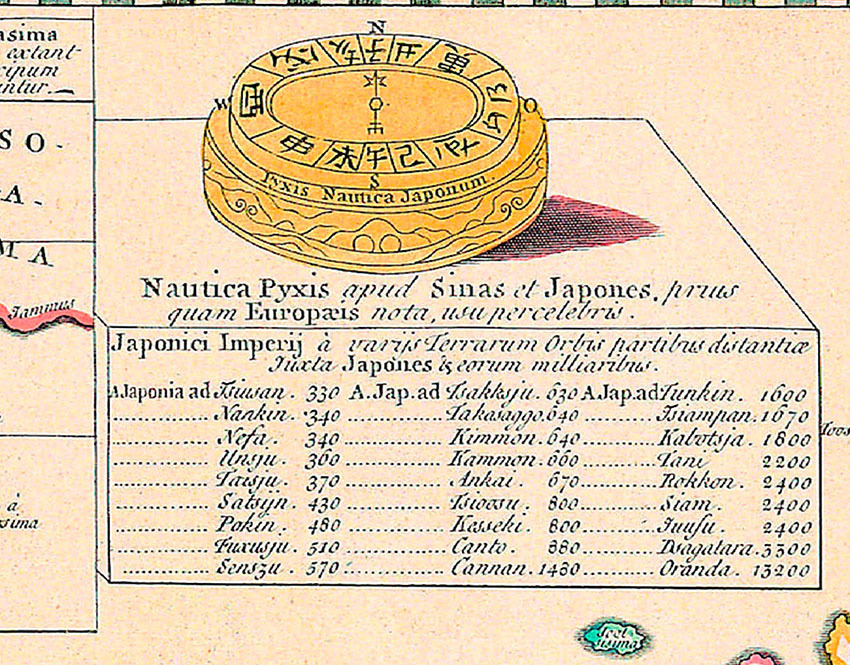 asima
extant
cipum
intur.
SO-
A-
MA
Jamnus
à
sima
N
子 丑 寅
酉
W O
申 未 午 巳
S
Pyxis Nautica Japonum.
Nautica Pyxis apud Sinas et Japones, prius
quam Europæis nota, usu percelebris.
Japonici Imperij à varijs Terrarum Orbis partibus distantiæ
Juxta Japones & eorum milliaribus.
A Japonia ad Tsiusan. 330 A. Jap. ad Tsakksju. 630 A Jap. ad Tunkin. 1600
Nankin. 340 Takasaggo. 640 Tsiampan. 1670
Nefa. 340 Kimmon. 640 Kabotsja. 1800
Unsju. 360 Kammon. 660 Tani 2200
Taisju. 370 Ankai. 670 Rokkon. 2400
Satsijn. 430 Tsioosu. 800 Siam. 2400
Pokin. 480 Kosseki. 800 Juufu. 2400
Fuxusju. 510 Canto. 880 Dsagatara. 3300
Senszu. 570 Cannan. 1480 Oranda. 13200